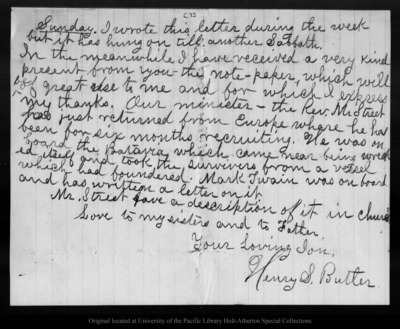 C 33
Sunday. I wrote this letter during the week
but it has hung on till another Sabbath.
In the meanwhile I have received a very kind
present from you - the note-paper, which will
be of great use to me and for which I express
my thanks. Our minister - the Rev. Mr. Street
has just returned from Europe where he has
been for six months recruiting. He was on
board the Batavia which came near being wreck
ed itself and took the survivors from a vessel
which had foundered. Mark Twain was on board
and has written a letter on it.
Mr. Street gave a description of it in church
Love to my sisters and to Father.
Your Loving Son,
Henry S. Butler.
Original located at University of the Pacific Library Holt-Atherton Special Collections